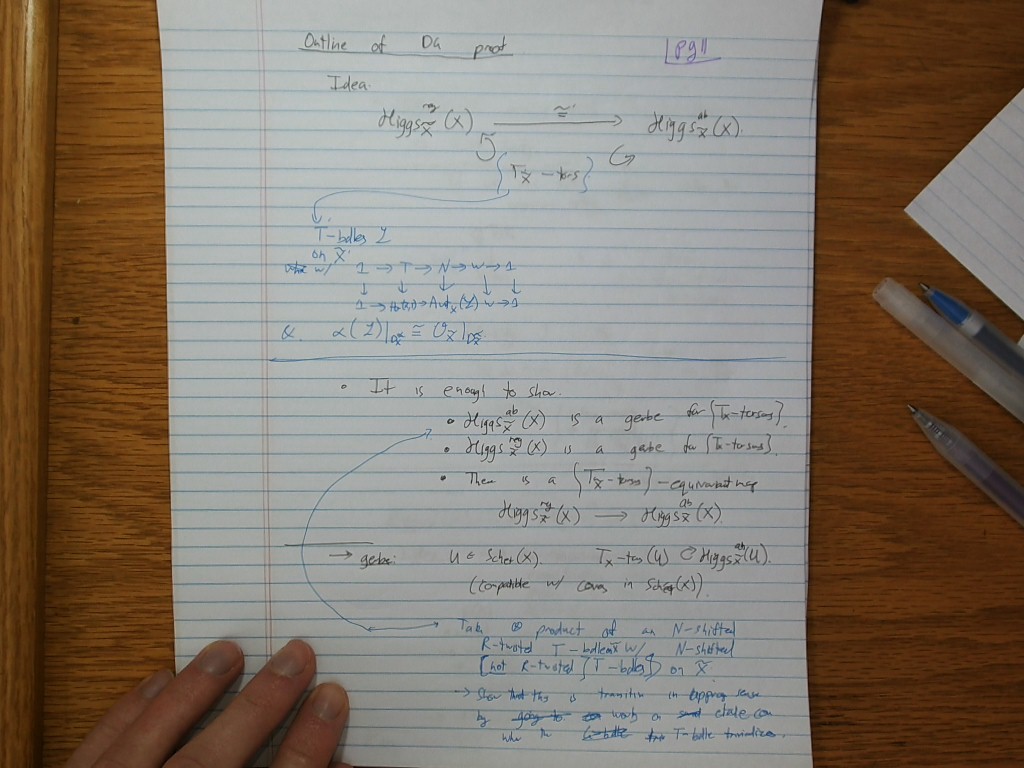 Outline of DG proof
pg 11
Idea.
Higgs^{rg}_{X̃}(X) ≅ → Higgs^{ab}_{X̃}(X).
{T_{X̃} - tors}
T-bdles L
on X̃:
w/ 1 → T → N → W → 1
↓ ↓ ↓ ↓ ↓
1 → → Aut_X(L) W → 1
&. α(L)|_{D^α_{X̃}} ≅ O_{X̃}|_{D^α_{X̃}}
• It is enough to show.
• Higgs^{ab}_{X̃}(X) is a gerbe for {T_{X̃}-torsors}.
• Higgs^{rg}_{X̃}(X) is a gerbe for {T_{X̃}-torsors}.
• There is a {T_{X̃}-torsors}-equivariant map
Higgs^{rg}_{X̃}(X) → Higgs^{ab}_{X̃}(X).
→ gerbe: U ∈ Schet(X). T_{X̃}-tors(U) Higgs^{ab}_{X̃}(U).
(compatible w/ covers in Schet(X)).
Take ⊗ product of an N-shifted
R-twisted T-bdle on X̃ w/ N-shifted
[not R-twisted] {T-bdles} on X̃.
→ Show that this is transitive in sense
by going to work a étale cov
where the T-bdle trivializes.